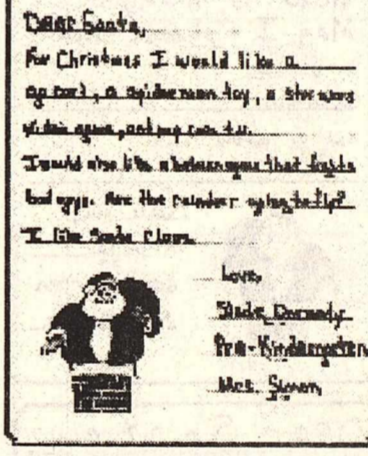 Dear Santa,
For Christmas I would like a
go cart, a spiderman toy, a star wars
video game, and my own t.v.
I would also like a game that fights
bad guys. Are the reindeer going to fly?
I like Santa Claus.
Love,
Slade
Pre-Kindergarten
Mrs. Simon